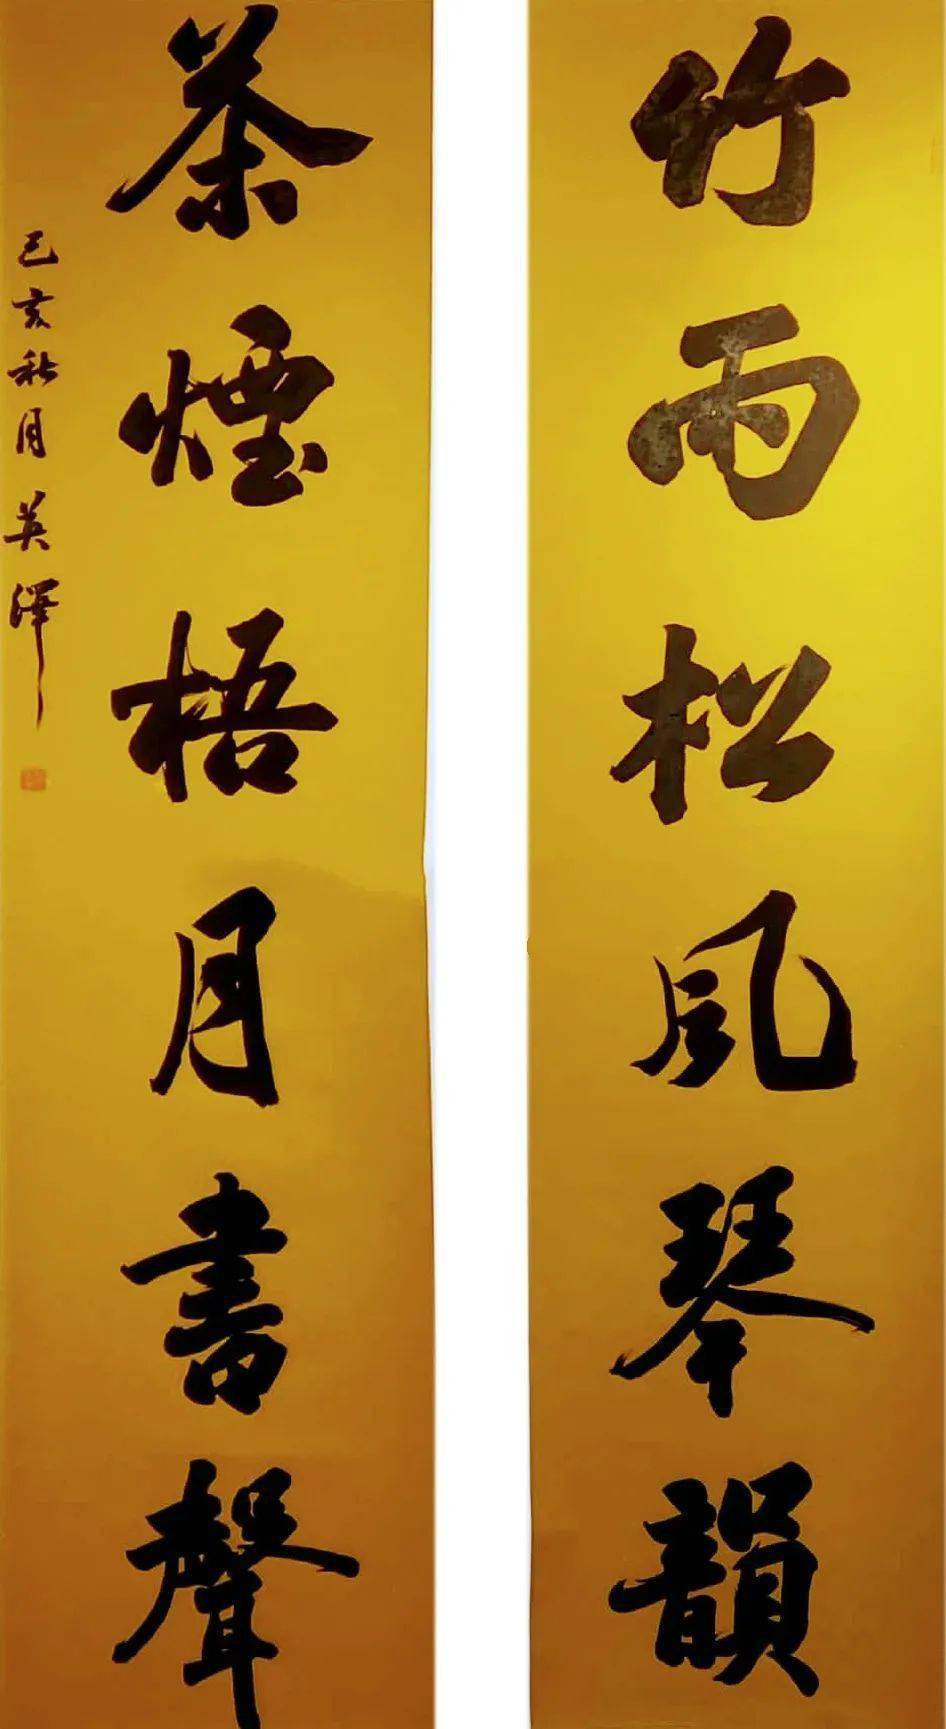 竹雨松風琴韻
茶煙梧月書聲
己亥秋月英澤